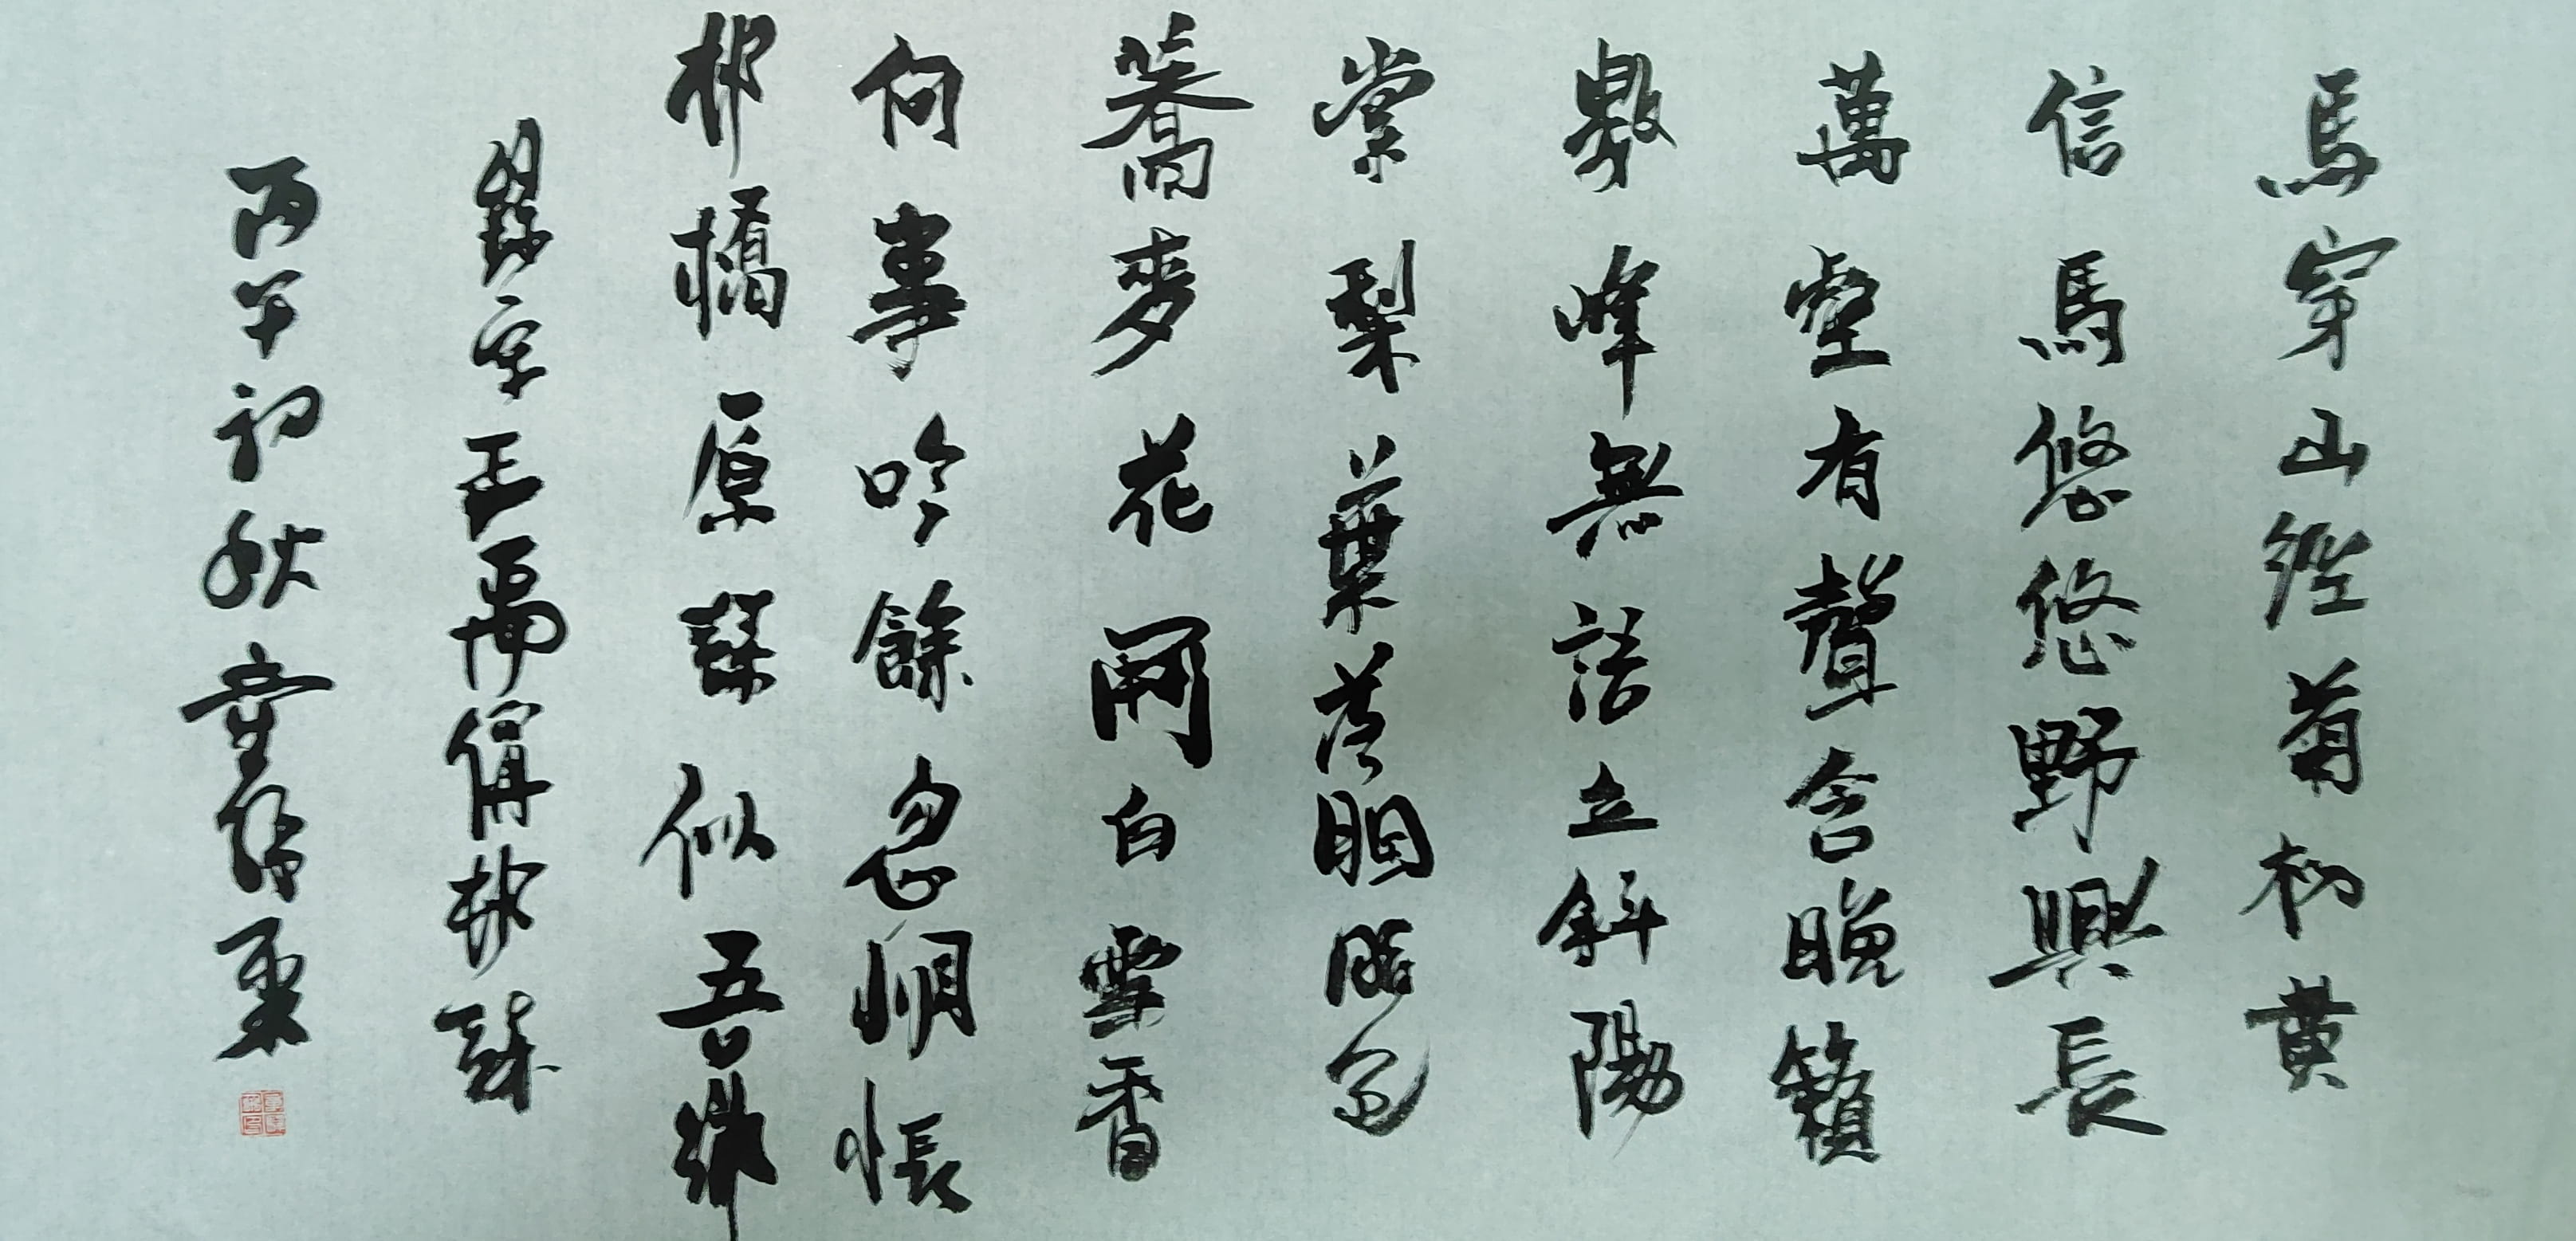 馬穿山徑菊初黄
信馬悠悠野興長
萬壑有聲含晚籟
數峰無語立斜陽
棠梨葉落胭脂色
蕎麥花開白雪香
何事吟餘忽惆悵
村橋原樹似吾鄉
錄宋王禹偁村
丙午初秋童